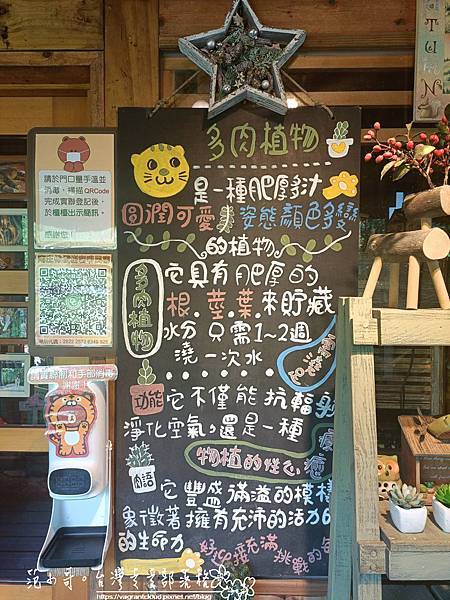 多肉植物
是一種肥厚多汁
圓潤可愛 姿態顏色多變
的植物
多肉植物
它具有肥厚的
根.莖.葉.來貯藏
水分 只需1~2週
澆一次水
功能
它不僅能抗輻射
淨化空氣,還是一種
療癒心性的植物
肉語
它豐盛滿溢的模樣
象徵著擁有充沛的活力
的生命力
請於門口量手溫並
消毒、掃描QRCode
完成實聯登記後
於櫃檯出示簡訊。
感謝您!
謝謝!
TUN
https://vagrantcloud.pixnet.net/blog